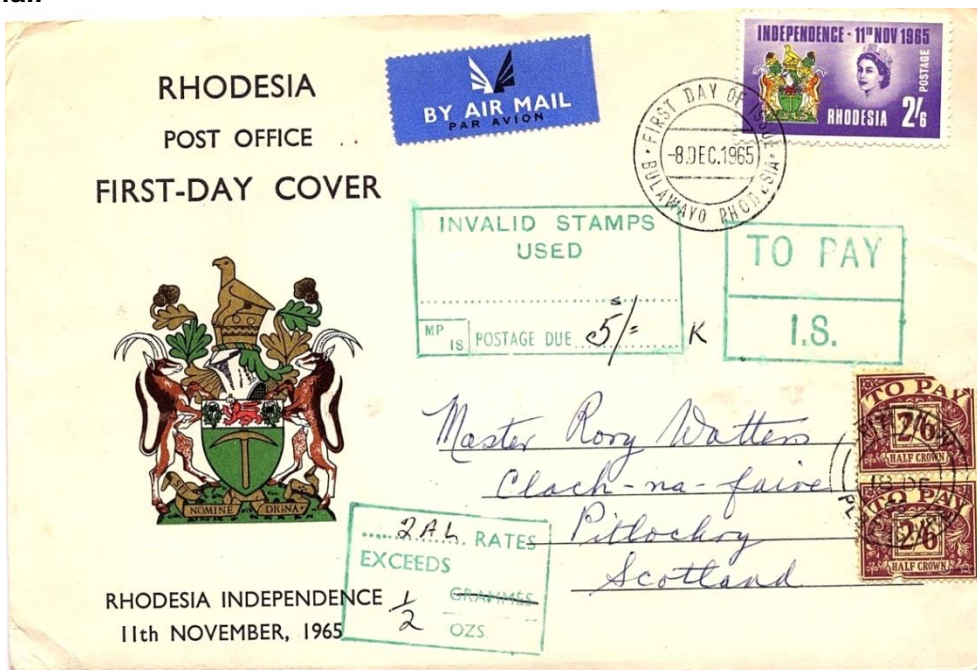 RHODESIA
POST OFFICE
FIRST-DAY COVER
BY AIR MAIL
PAR AVION
INDEPENDENCE · 11TH NOV 1965
POSTAGE
RHODESIA 2/6
FIRST DAY OF ISSUE
-8.DEC.1965
BULAWAYO RHODESIA
INVALID STAMPS
USED
MP
IS
POSTAGE DUE 5/= K
TO PAY
I.S.
NOMINE DIGNA
Master Rory Watters
Clach-na-faire
Pitlochry
Scotland
TO PAY
2/6
HALF CROWN
TO PAY
2/6
HALF CROWN
2 A.L. RATES
EXCEEDS
1/2 GRAMMES
OZS
RHODESIA INDEPENDENCE
11th NOVEMBER, 1965